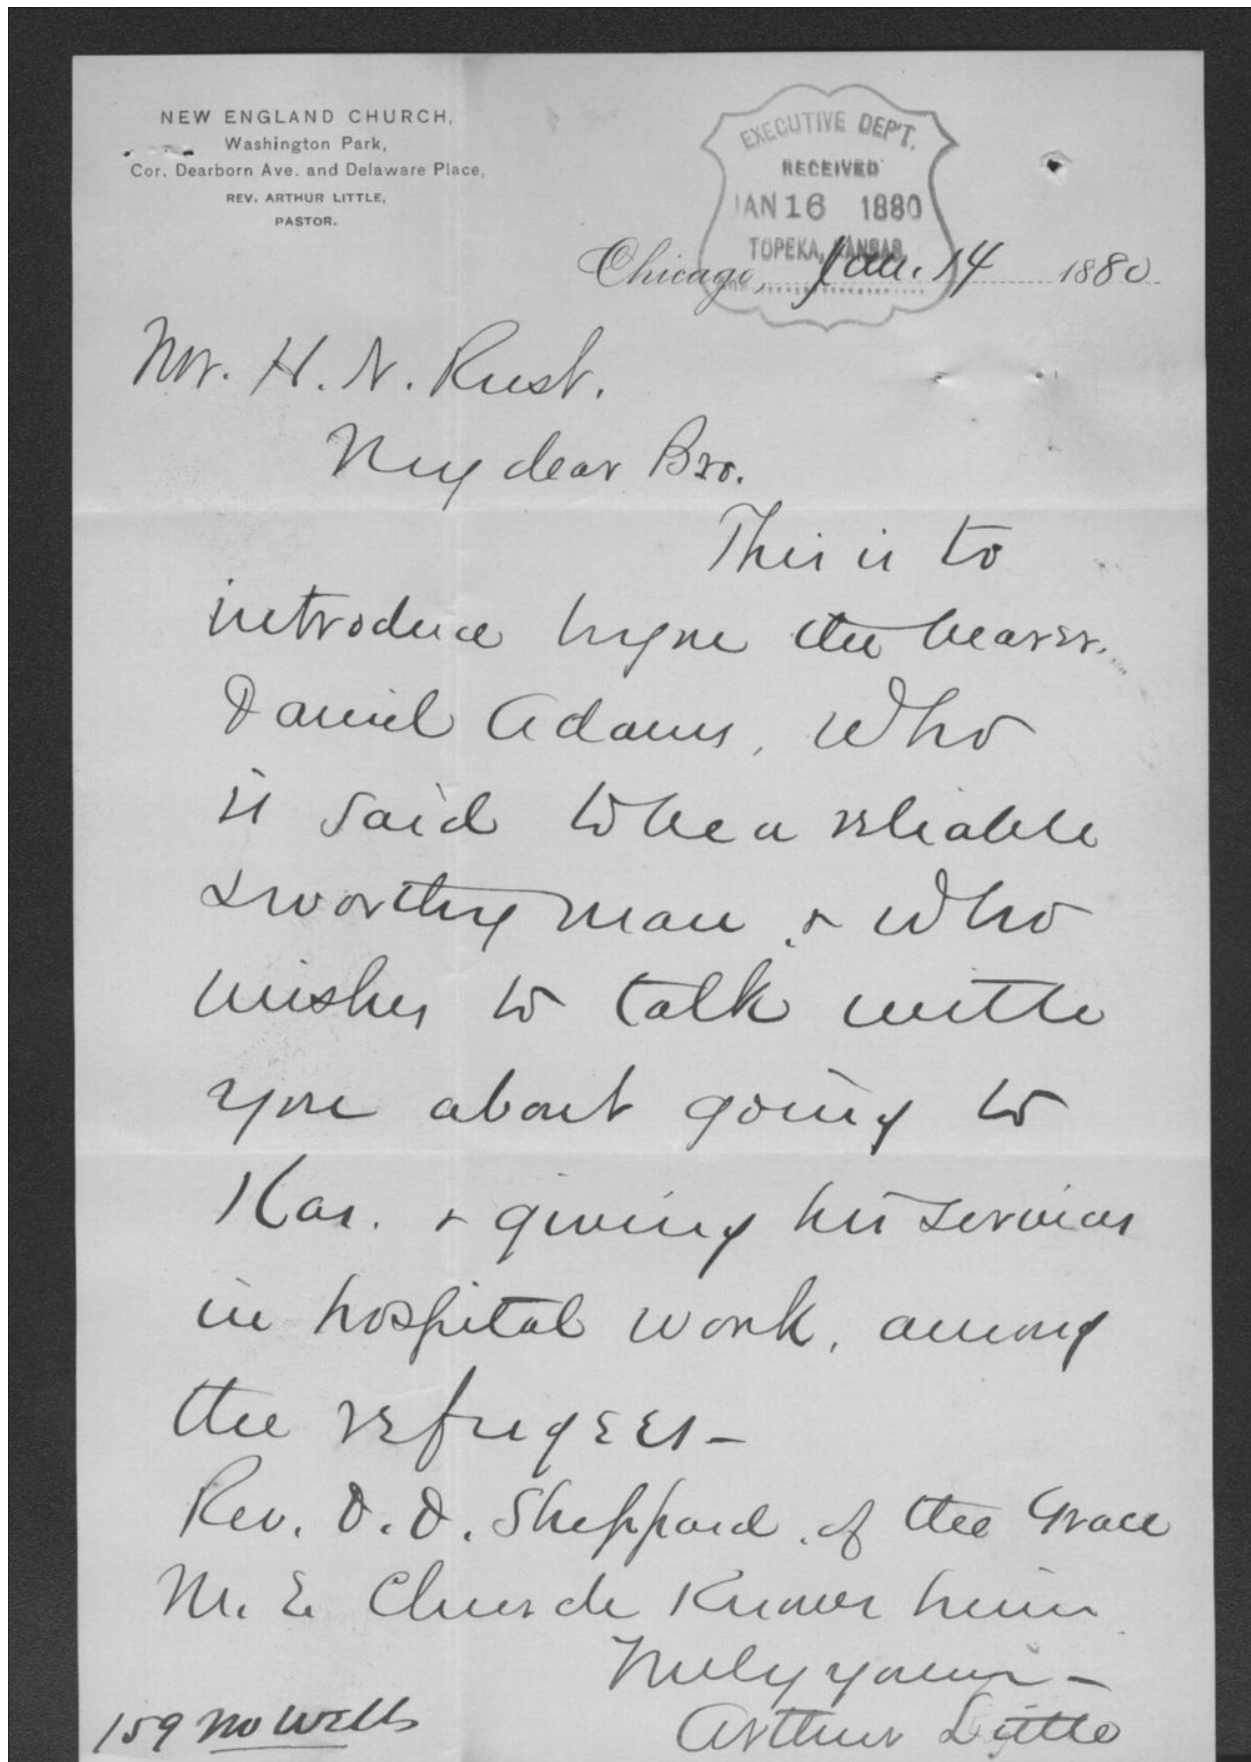 NEW ENGLAND CHURCH,
Washington Park,
Cor. Dearborn Ave. and Delaware Place,
REV. ARTHUR LITTLE,
PASTOR.
EXECUTIVE DEP'T.
RECEIVED
JAN 16 1880
TOPEKA, KANSAS.
Chicago, Jan. 14 1880
Mr. H. N. Rust.
My dear Bro.
This is to
introduce to you the bearer.
Daniel Adams, who
is said to be a reliable
& worthy man, & who
wishes to talk with
you about going to
Kas. & giving his services
in hospital work, among
the refugees -
Rev. D. D. Sheppard, of the Grace
M. E. Church knows him
Truly yours -
Arthur Little
159 No Wells